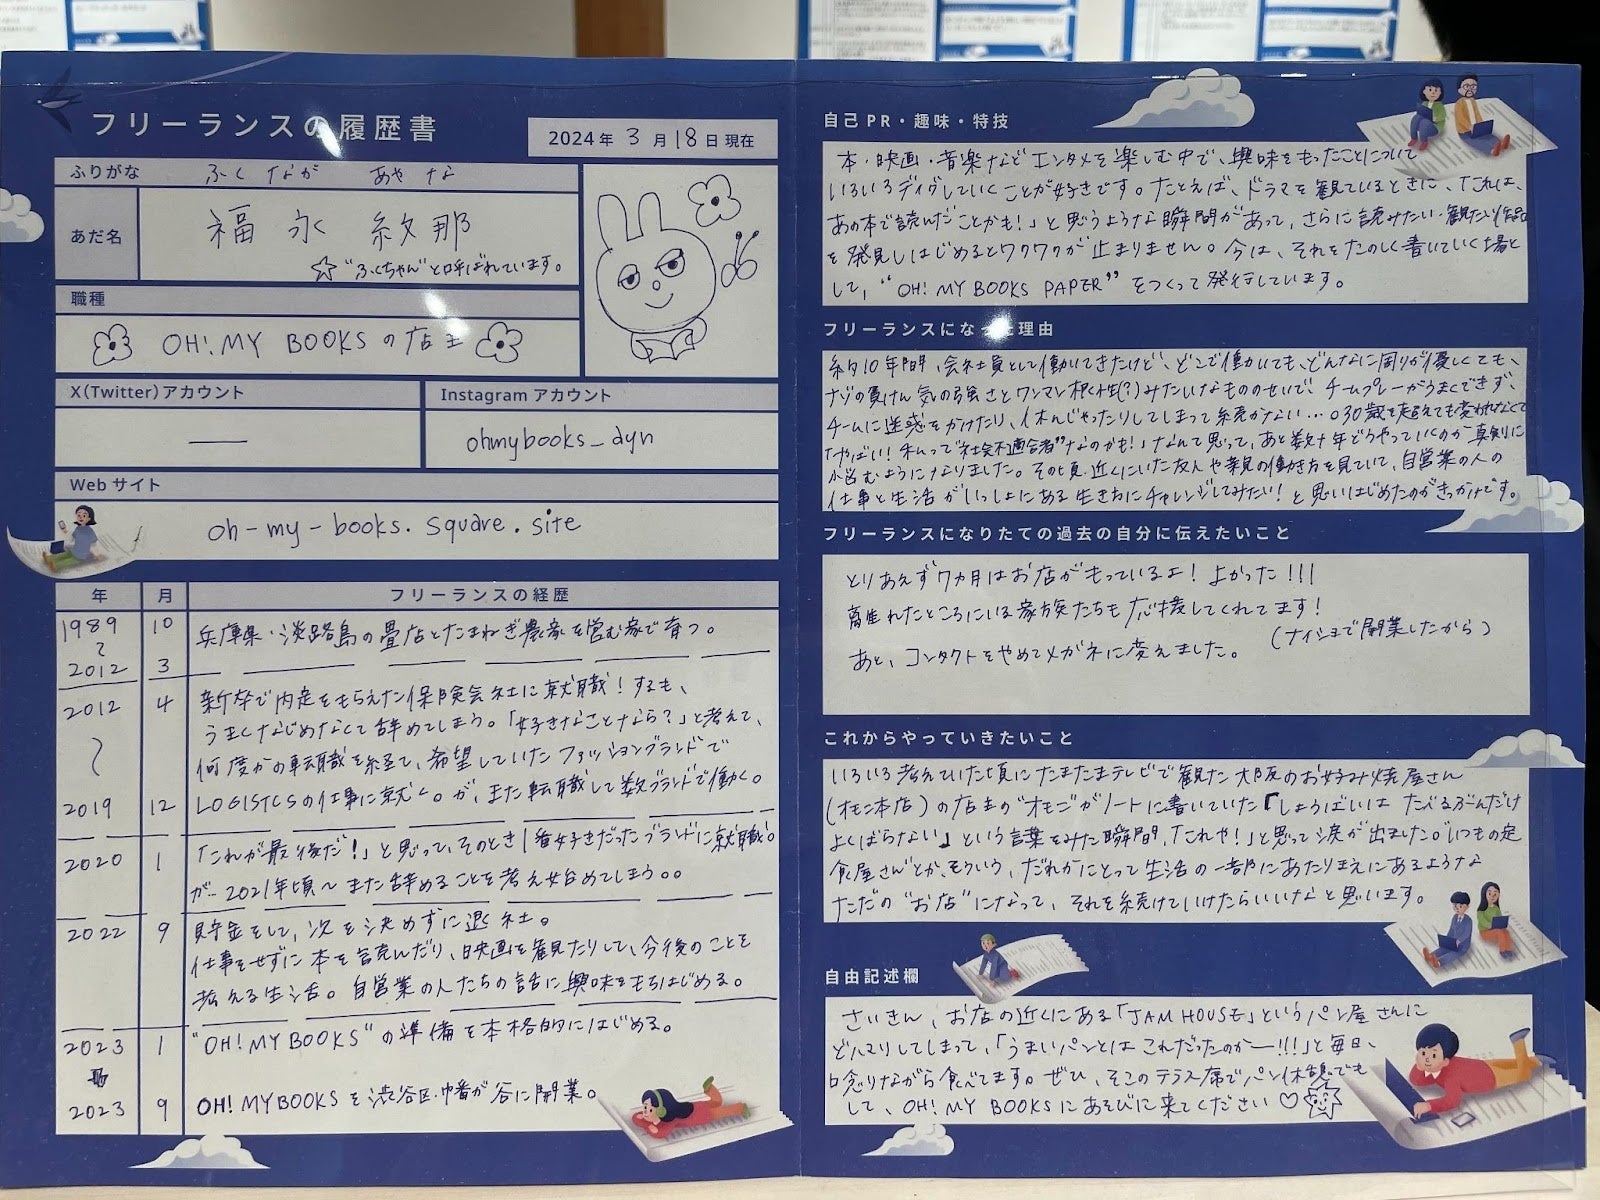 フリーランスの履歴書
2024年 3月18日現在
ふりがな ふく なが あや な
あだ名 福永 紋那
☆"ふくちゃん"と呼ばれています。
職種
OH! MY BOOKS の店主
X(Twitter)アカウント
―
Instagram アカウント
ohmybooks_dyn
Web サイト
oh-my-books.square.site
年 月 フリーランスの経歴
1989 10 兵庫県・淡路島の畳店とたまねぎ農家を営む家で育つ。
〜
2012 3
2012 4 新卒で内定をもらえた保険会社に就職！するも、
うまくなじめなくて辞めてしまう。「好きなことなら？」と考えて、
〜 何度かの転職を経て、希望していたファッションブランドで
2019 12 LOGISTCSの仕事に就く。が、また転職して数ブランドで働く。
2020 1 「これが最後だ！」と思って、そのとき1番好きだったブランドに就職。
が…2021年頃〜また辞めることを考え始めてしまう。。
2022 9 貯金をして、次を決めずに退社。
仕事をせずに本を読んだり、映画を観たりして、今後のことを
考える生活。自営業の人たちの話に興味をもちはじめる。
2023 1 "OH! MY BOOKS"の準備を本格的にはじめる。
2023 9 OH! MY BOOKSを渋谷区・幡が谷に開業。
自己PR・趣味・特技
本・映画・音楽などエンタメを楽しむ中で、興味をもったことについて
いろいろディグしていくことが好きです。たとえば、ドラマを観ているときに、「これは、
あの本で読んだことかも！」と思うような瞬間があって、さらに読みたい・観たい作品
を発見しはじめるとワクワクが止まりません。今は、それをたのしく書いていく場と
して、"OH! MY BOOKS PAPER"をつくって発行しています。
フリーランスになった理由
約10年間、会社員として働いてきたけど、どこで働いても、どんなに周りが優しくても、
ナゾの負けん気の強さとワンマン根性(？)みたいなもののせいで、チームプレーがうまくできず、
チームに迷惑をかけたり、休んじゃったりしてしまって続かない…。30歳を超えても変われなくて
「やばい！私って"社会不適合者"なのかも！」なんて思って、あと数十年どうやっていくのか真剣に
悩むようになりました。その頃、近くにいた友人や親の働き方を見ていて、自営業の人の
仕事と生活がいっしょにある生き方にチャレンジしてみたい！と思いはじめたのがきっかけです。
フリーランスになりたての過去の自分に伝えたいこと
とりあえず7カ月はお店がもっているよ！よかった!!!
離れたところにいる家族たちも応援してくれてます！
(ナイショで開業したから)
あと、コンタクトをやめてメガネに変えました。
これからやっていきたいこと
いろいろ考えていた頃にたまたまテレビで観た大阪のお好み焼屋さん
(オモニ本店)の店主の"オモニ"がノートに書いていた「しょうばいは たべるぶんだけ
よくばらない」という言葉をみた瞬間、「これや！」と思って涙が出ました。"いつもの定
食屋さん"とか、そういう、だれかにとって生活の一部にあたりまえにあるような
ただの"お店"になって、それを続けていけたらいいなと思います。
自由記述欄
さいきん、お店の近くにある「JAM HOUSE」というパン屋さんに
どハマりしてしまって、「うまいパンとはこれだったのかー!!!」と毎日、
唸りながら食べてます。ぜひ、そこのテラス席でパン休憩でも
して、OH! MY BOOKSにあそびに来てください♡